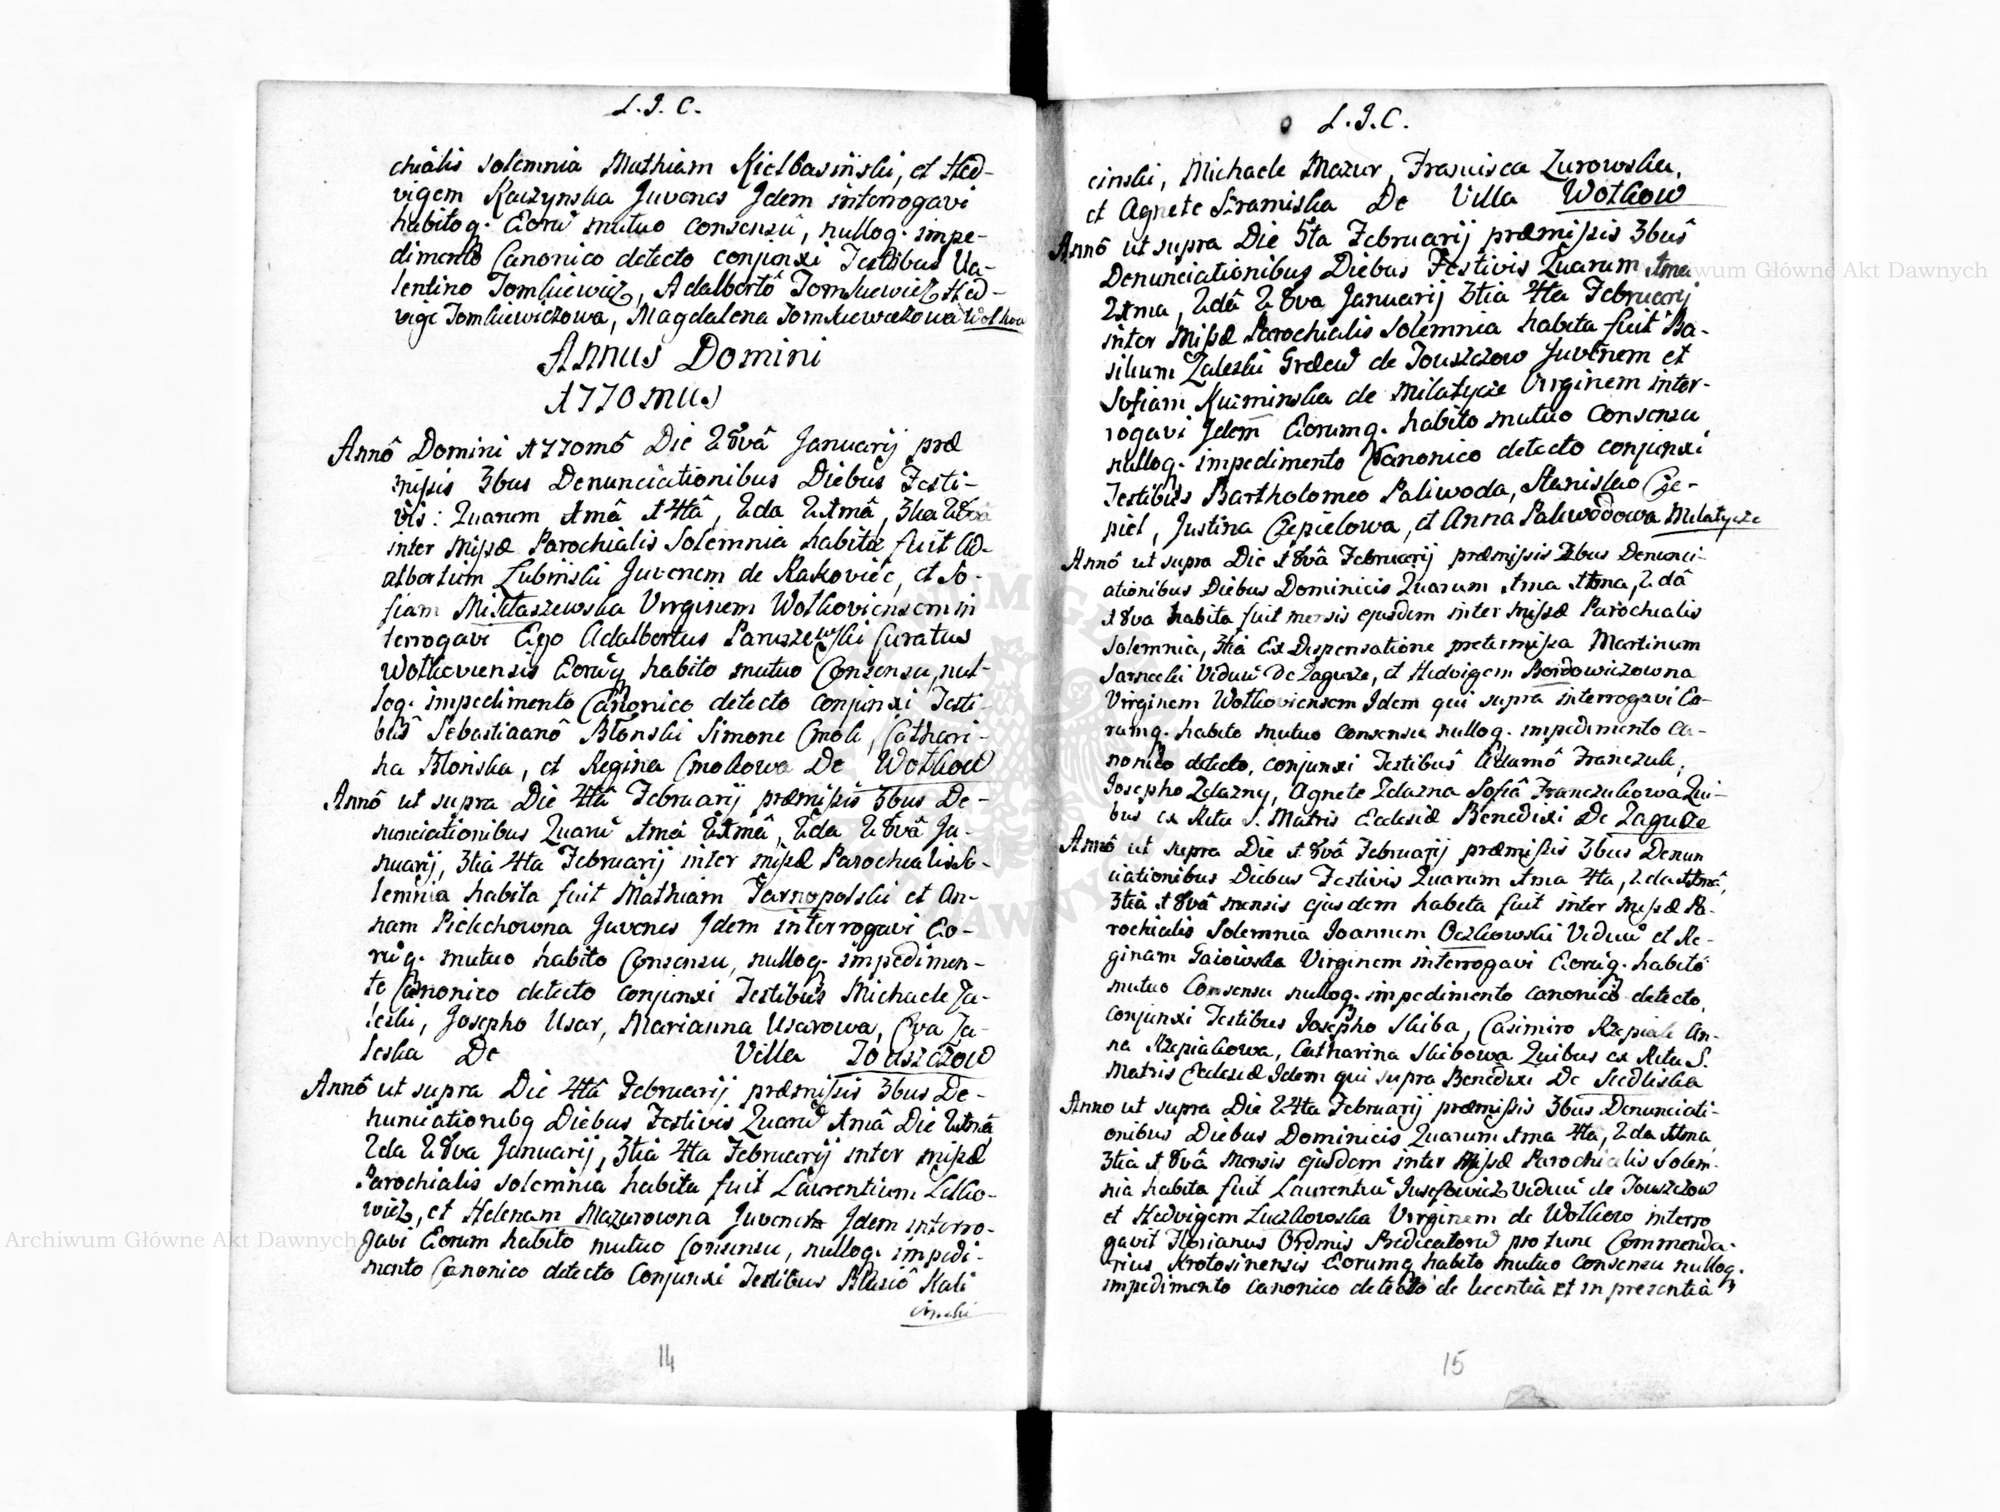 L. J. C.
chialis solemnia Mathiam Kiełbasiński, et Hed-
vigem Raczynska Juvenes Idem interrogavi
habitoq. Eorū mutuo consensû, nulloq. impe-
dimento Canonico detecto conjunxi Testibus Va-
lentino Tomkiewicz, Adalbertô Tomkiewicz Hed-
vige Tomkiewiczowa, Magdalena Tomkiewiczowa
Annus Domini
1770mus
Annô Domini 1770mô Die 28vâ Januarij præ
missis 3bus Denunciationibus Diebus Festi-
vis: Quarum 1mâ 14tâ, 2da 21mâ, 3tia 28va
inter Missæ Parochialis Solemnia habita fuit Ad-
albertum Lubiński Juvenem de Rakoviec, et So-
fiam Mikłaszewska Virginem Wołkoviensem in
terrogavi Ego Adalbertus Paruszewski Curatus
Wołkoviensis Eorūq habito mutuo Consensu, nul-
loq. impedimento Canonico detecto conjunxi Testi-
bus Sebastiaanô Błonski Simone Cmok, Cathari-
na Błońska, et Regina Cmokowa De Wołkow
Annô ut supra Die 4tâ Februarij præmissis 3bus De-
nunciationibus Quarū 1ma 21mâ, 2da 28vâ Ja-
nuarij, 3tia 4ta Februarij inter missæ Parochialis So-
lemnia habita fuit Mathiam Tarnopolski et An-
nam Pielechowna Juvenes Idem interrogavi Eo-
rūq. mutuo habito Consensu, nulloq. impedimen-
to Canonico detecto conjunxi Testibus Michaele Za-
leski, Josepho Usar, Marianna Usarowa, Eva Za-
leska De Villa Touszczow
Annô ut supra Die 4tâ Februarij præmissis 3bus De-
nunciationibq Diebus Festivis Quarū 1mâ Die 21mâ
2da 28va Januarij, 3tia 4ta Februarij inter missæ
Parochialis solemnia habita fuit Laurentium Lelko-
wicz, et Helenam Mazurowna Juvenes Idem interro-
gavi Eorum habito mutuo Consensu, nulloq. impedi-
mento Canonico detecto Conjunxi Testibus Blasiô Kali
cinski
14
L. J. C.
cinski, Michaele Mazur, Francisca Zurowska,
et Agnete De Villa Wołkow
Annô ut supra Die 5ta Februarij præmissis 3bus
Denunciationibus Diebus Festivis Quarum 1ma
21ma, 2dâ 28va Januarij 3tia 4ta Februarij
inter Missæ Parochialis Solemnia habita fuit Ba-
silium Zaleski de Touszczow Juvenem et
Sofiam Kuzminska de Milatycze Virginem inter-
rogavi Idem Eorumq. habito mutuo Consensu
nulloq. impedimento Canonico detecto conjunxi
Testibus Bartholomeo Paliwoda, Stanislao Cze-
piel, Justina Czepielowa, et Anna Paliwodowa Milatycze
Annô ut supra Die 18vâ Februarij præmissis 2bus Denunci-
ationibus Diebus Dominicis Quarum 1ma 11ma, 2dâ
18va habita fuit mensis ejusdem inter missæ Parochialis
Solemnia, 3tia Ex Dispensatione pretermissa Martinum
Sarnecki Viduū De Zagurze, et Hedvigem Bordowiczowna
Virginem Wołkoviensem Idem qui supra interrogavi Eo-
rumq. habito mutuo consensu nulloq. impedimento Ca-
nonico detecto, conjunxi Testibus Adamô Franczuk,
Josepho Zelazny, Agnete Zelazna Sofiâ Franczukowa Qui-
bus ex Ritu S. Matris Ecclesiæ Benedixi De Zagurze
Annô ut supra Die 18vâ Februarij præmissis 3bus Denun
ciationibus Diebus Festivis Quarum 1ma 4ta, 2da 11mâ,
3tia 18vâ mensis ejusdem habita fuit inter Missæ Pa-
rochialis Solemnia Joannem Oczkowski Viduū et Re-
ginam Gaiowska Virginem interrogavi Eorūq. habitô
mutuo Consensu nulloq. impedimento canonico detecto,
conjunxi Testibus Josepho Skiba, Casimiro Rzepiak An-
na Rzepiakowa, Catharina Skibowa Quibus ex Ritu S.
Matris Ecclesiæ Idem qui supra Benedixi De Siedliska
Anno ut supra Die 24ta Februarij præmissis 3bus Denunciati-
onibus Diebus Dominicis Quarum 1ma 4ta, 2da 11ma
3tia 18vâ Mensis ejusdem inter Missæ Parochialis Solem-
nia habita fuit Laurentiū Jusefowicz Viduū de Touszczow
et Hedvigem Luczkowska Virginem de Wołkow interro
gavit Florianus Ordinis Predicatorū pro tunc Commenda-
rius Krotosinensis Eorumq habito mutuo Consensu nulloq.
impedimento Canonico detecto de licentia et in presentia
15
Archiwum Główne Akt Dawnych
Archiwum Główne Akt Dawnych